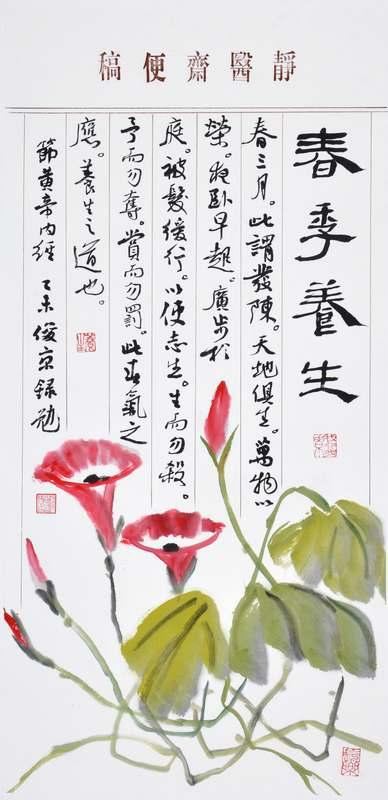 靜醫齋便稿
春季養生
春三月。此謂發陳。天地俱生。萬物以
榮。夜卧早起。廣步於
庭。被髮緩行。以使志生。生而勿殺。
予而勿奪。賞而勿罰。此春氣之
應。養生之道也。
節黄帝内經 乙未俊京録勉